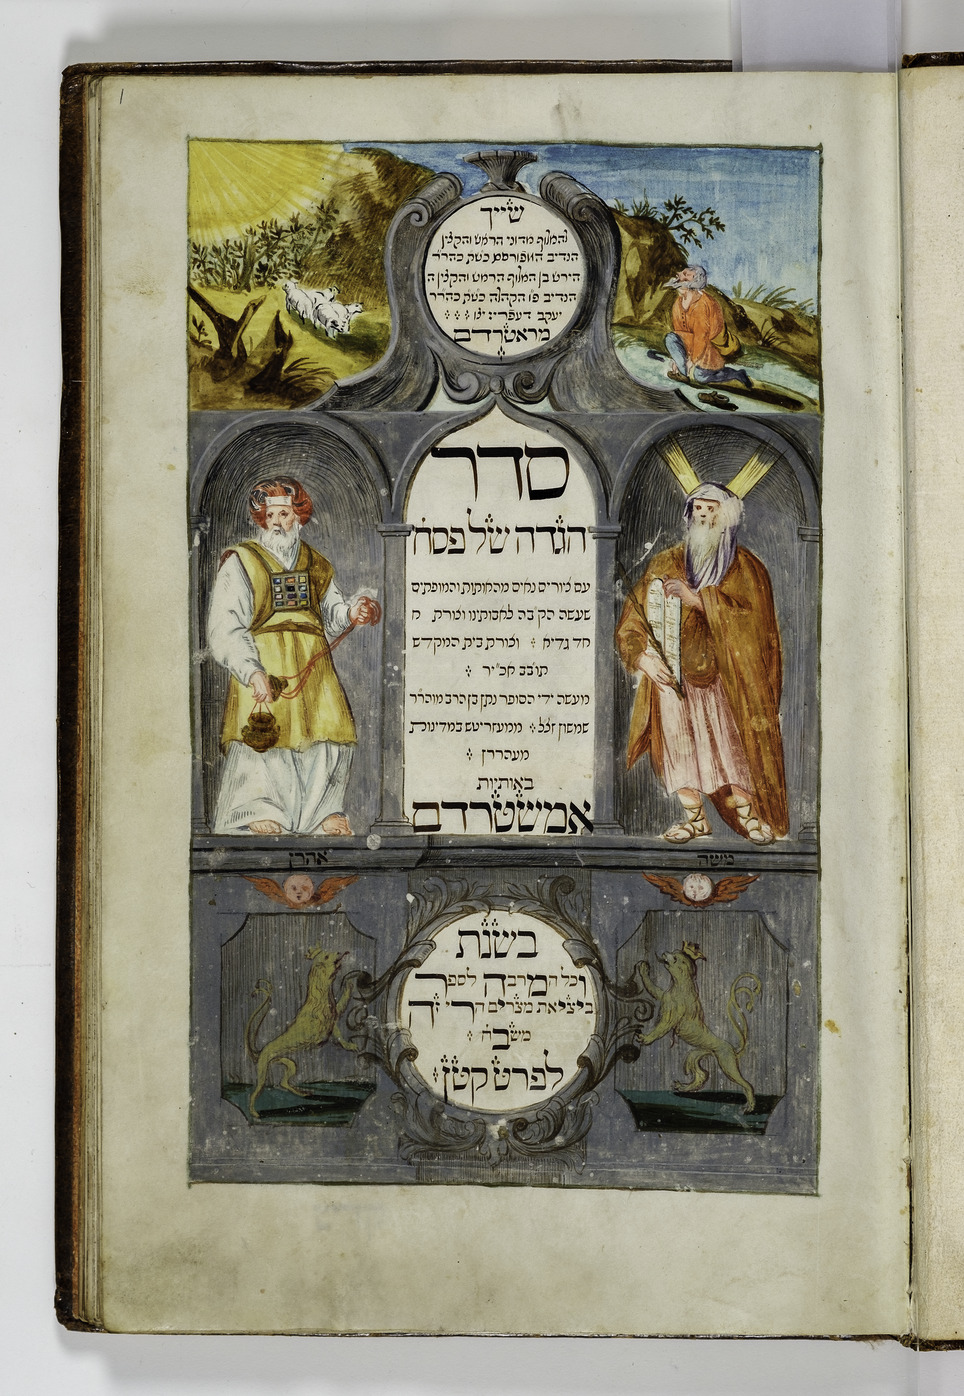 1
שייך
להאלוף מדוני הרמש והקצין
הנדיב המפורסם כש״ת כהרר
הירש בן האלוף הרמש והקצין ה
הנדיב פ״ו הקהלה כש״ת כהרר
יעקב
מראטרדם
סדר
הגדה של פסח
עם ציורים נאים מהאותות והמופתים
שעשה הק״בה לאבותינו וצורת ח
חד גדיא וצורת בית המקדש
תובב אכי״ר
מעשה ידי הסופר נתן בן הרב מוהרר
שמשון זצ״ל ממעזריטש במדינות
מעהררן
באותיות
אמשטרדם
אהרן
משה
בשנת
וכל המרבה לספר
ביציאת מצרים הרי זה
משבח
לפרט קטן